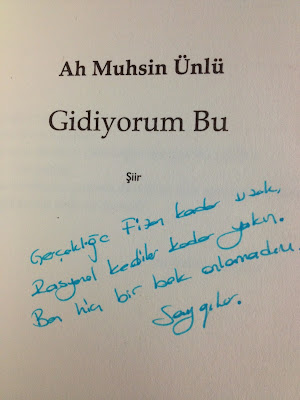 Ah Muhsin Ünlü
Gidiyorum Bu
Şiir
Gerçekliğe Fizan kadar uzak,
Rasyonel kediler kadar yakın.
Ben hiç bir bok anlamadım.
Saygılar.